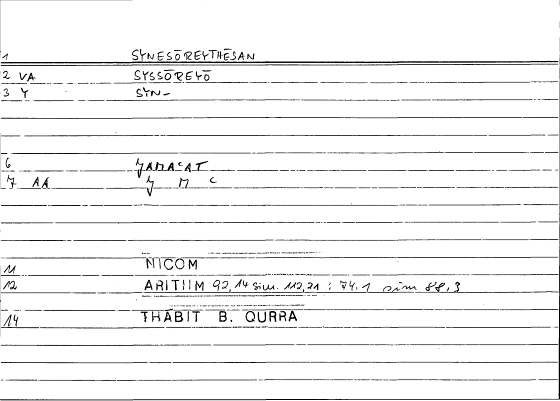 1 SYNESŌREYTHĒSAN
2 VA SYSSŌREYŌ
3 Y SYN-
6 ǦAMAʿAT
7 AA Ǧ M ʿ
11 NICOM
12 ARITHM 92,14 sim. 112,21 : 74.1 sim 88,3
14 THĀBIT B. QURRA